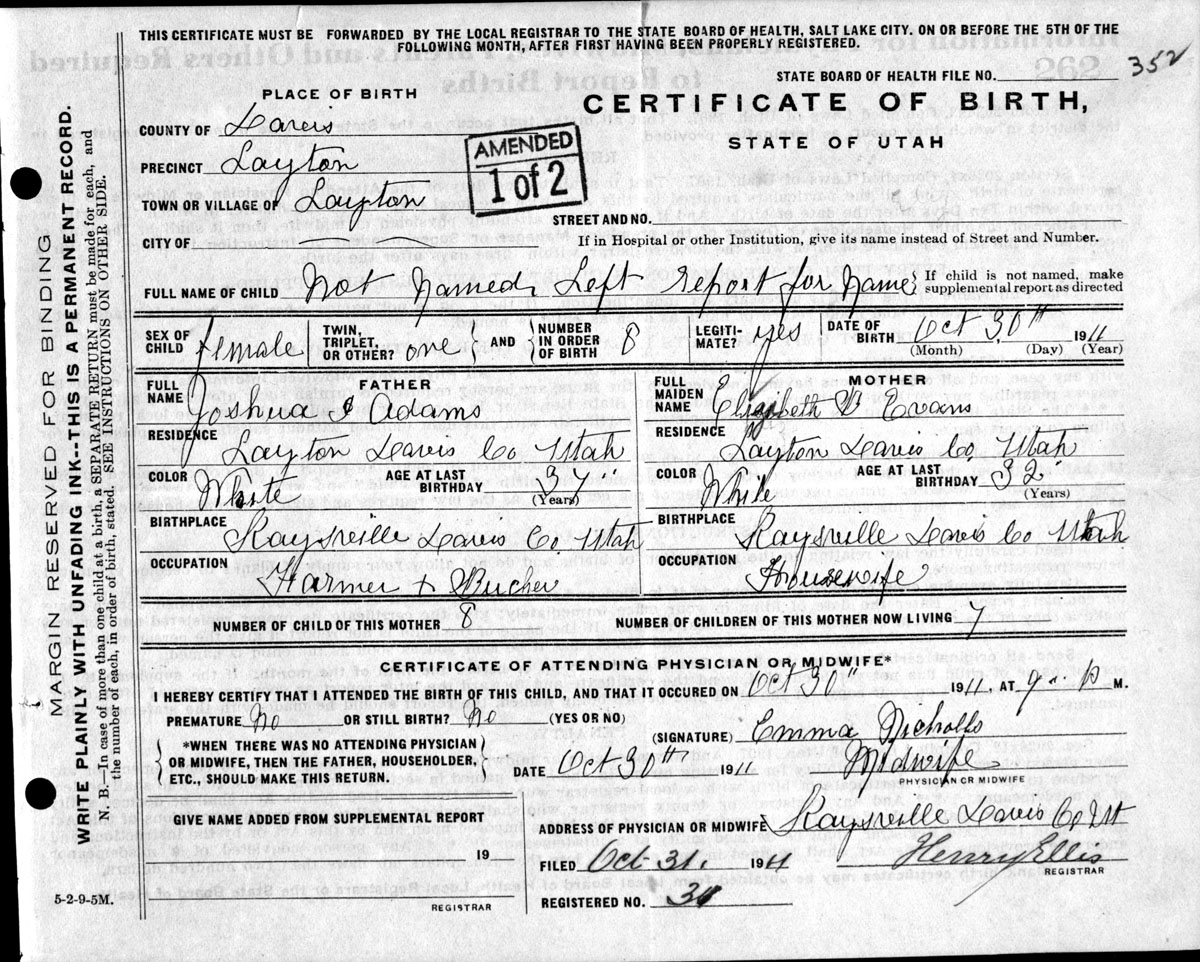 THIS CERTIFICATE MUST BE FORWARDED BY THE LOCAL REGISTRAR TO THE STATE BOARD OF HEALTH, SALT LAKE CITY. ON OR BEFORE THE 5TH OF THE
FOLLOWING MONTH, AFTER FIRST HAVING BEEN PROPERLY REGISTERED.
STATE BOARD OF HEALTH FILE NO. 352
PLACE OF BIRTH
CERTIFICATE OF BIRTH,
STATE OF UTAH
COUNTY OF Davis
PRECINCT Layton
TOWN OR VILLAGE OF Layton
AMENDED
1 of 2
STREET AND NO.
CITY OF
If in Hospital or other Institution, give its name instead of Street and Number.
FULL NAME OF CHILD Not Named, Left report for Name { If child is not named, make
supplemental report as directed
SEX OF CHILD female TWIN, TRIPLET, OR OTHER? one AND NUMBER IN ORDER OF BIRTH 8 LEGITI-MATE? yes DATE OF BIRTH Oct 30th 1911
(Month) (Day) (Year)
FATHER
FULL NAME Joshua I Adams
RESIDENCE Layton Davis Co Utah
COLOR White AGE AT LAST BIRTHDAY 37 (Years)
BIRTHPLACE Kaysville Davis Co. Utah
OCCUPATION Farmer + Bucher
MOTHER
FULL MAIDEN NAME Elizabeth B Evans
RESIDENCE Layton Davis Co Utah
COLOR White AGE AT LAST BIRTHDAY 32 (Years)
BIRTHPLACE Kaysville Davis Co Utah
OCCUPATION Housewife
NUMBER OF CHILD OF THIS MOTHER 8 NUMBER OF CHILDREN OF THIS MOTHER NOW LIVING 7
CERTIFICATE OF ATTENDING PHYSICIAN OR MIDWIFE*
I HEREBY CERTIFY THAT I ATTENDED THE BIRTH OF THIS CHILD, AND THAT IT OCCURED ON Oct 30th 1911, AT 9 P M.
PREMATURE No OR STILL BIRTH? No (YES OR NO)
(SIGNATURE) Emma Nicholls
*WHEN THERE WAS NO ATTENDING PHYSICIAN
OR MIDWIFE, THEN THE FATHER, HOUSEHOLDER,
ETC., SHOULD MAKE THIS RETURN.
DATE Oct 30th 1911 Midwife
PHYSICIAN OR MIDWIFE
GIVE NAME ADDED FROM SUPPLEMENTAL REPORT
19
REGISTRAR
ADDRESS OF PHYSICIAN OR MIDWIFE Kaysville Davis Co Ut
FILED Oct 31, 1911 Henry Ellis
REGISTRAR
REGISTERED NO.
5-2-9-5M.
MARGIN RESERVED FOR BINDING
WRITE PLAINLY WITH UNFADING INK--THIS IS A PERMANENT RECORD.
N. B.—In case of more than one child at a birth, a SEPARATE RETURN must be made for each, and
the number of each, in order of birth, stated. SEE INSTRUCTIONS ON OTHER SIDE.